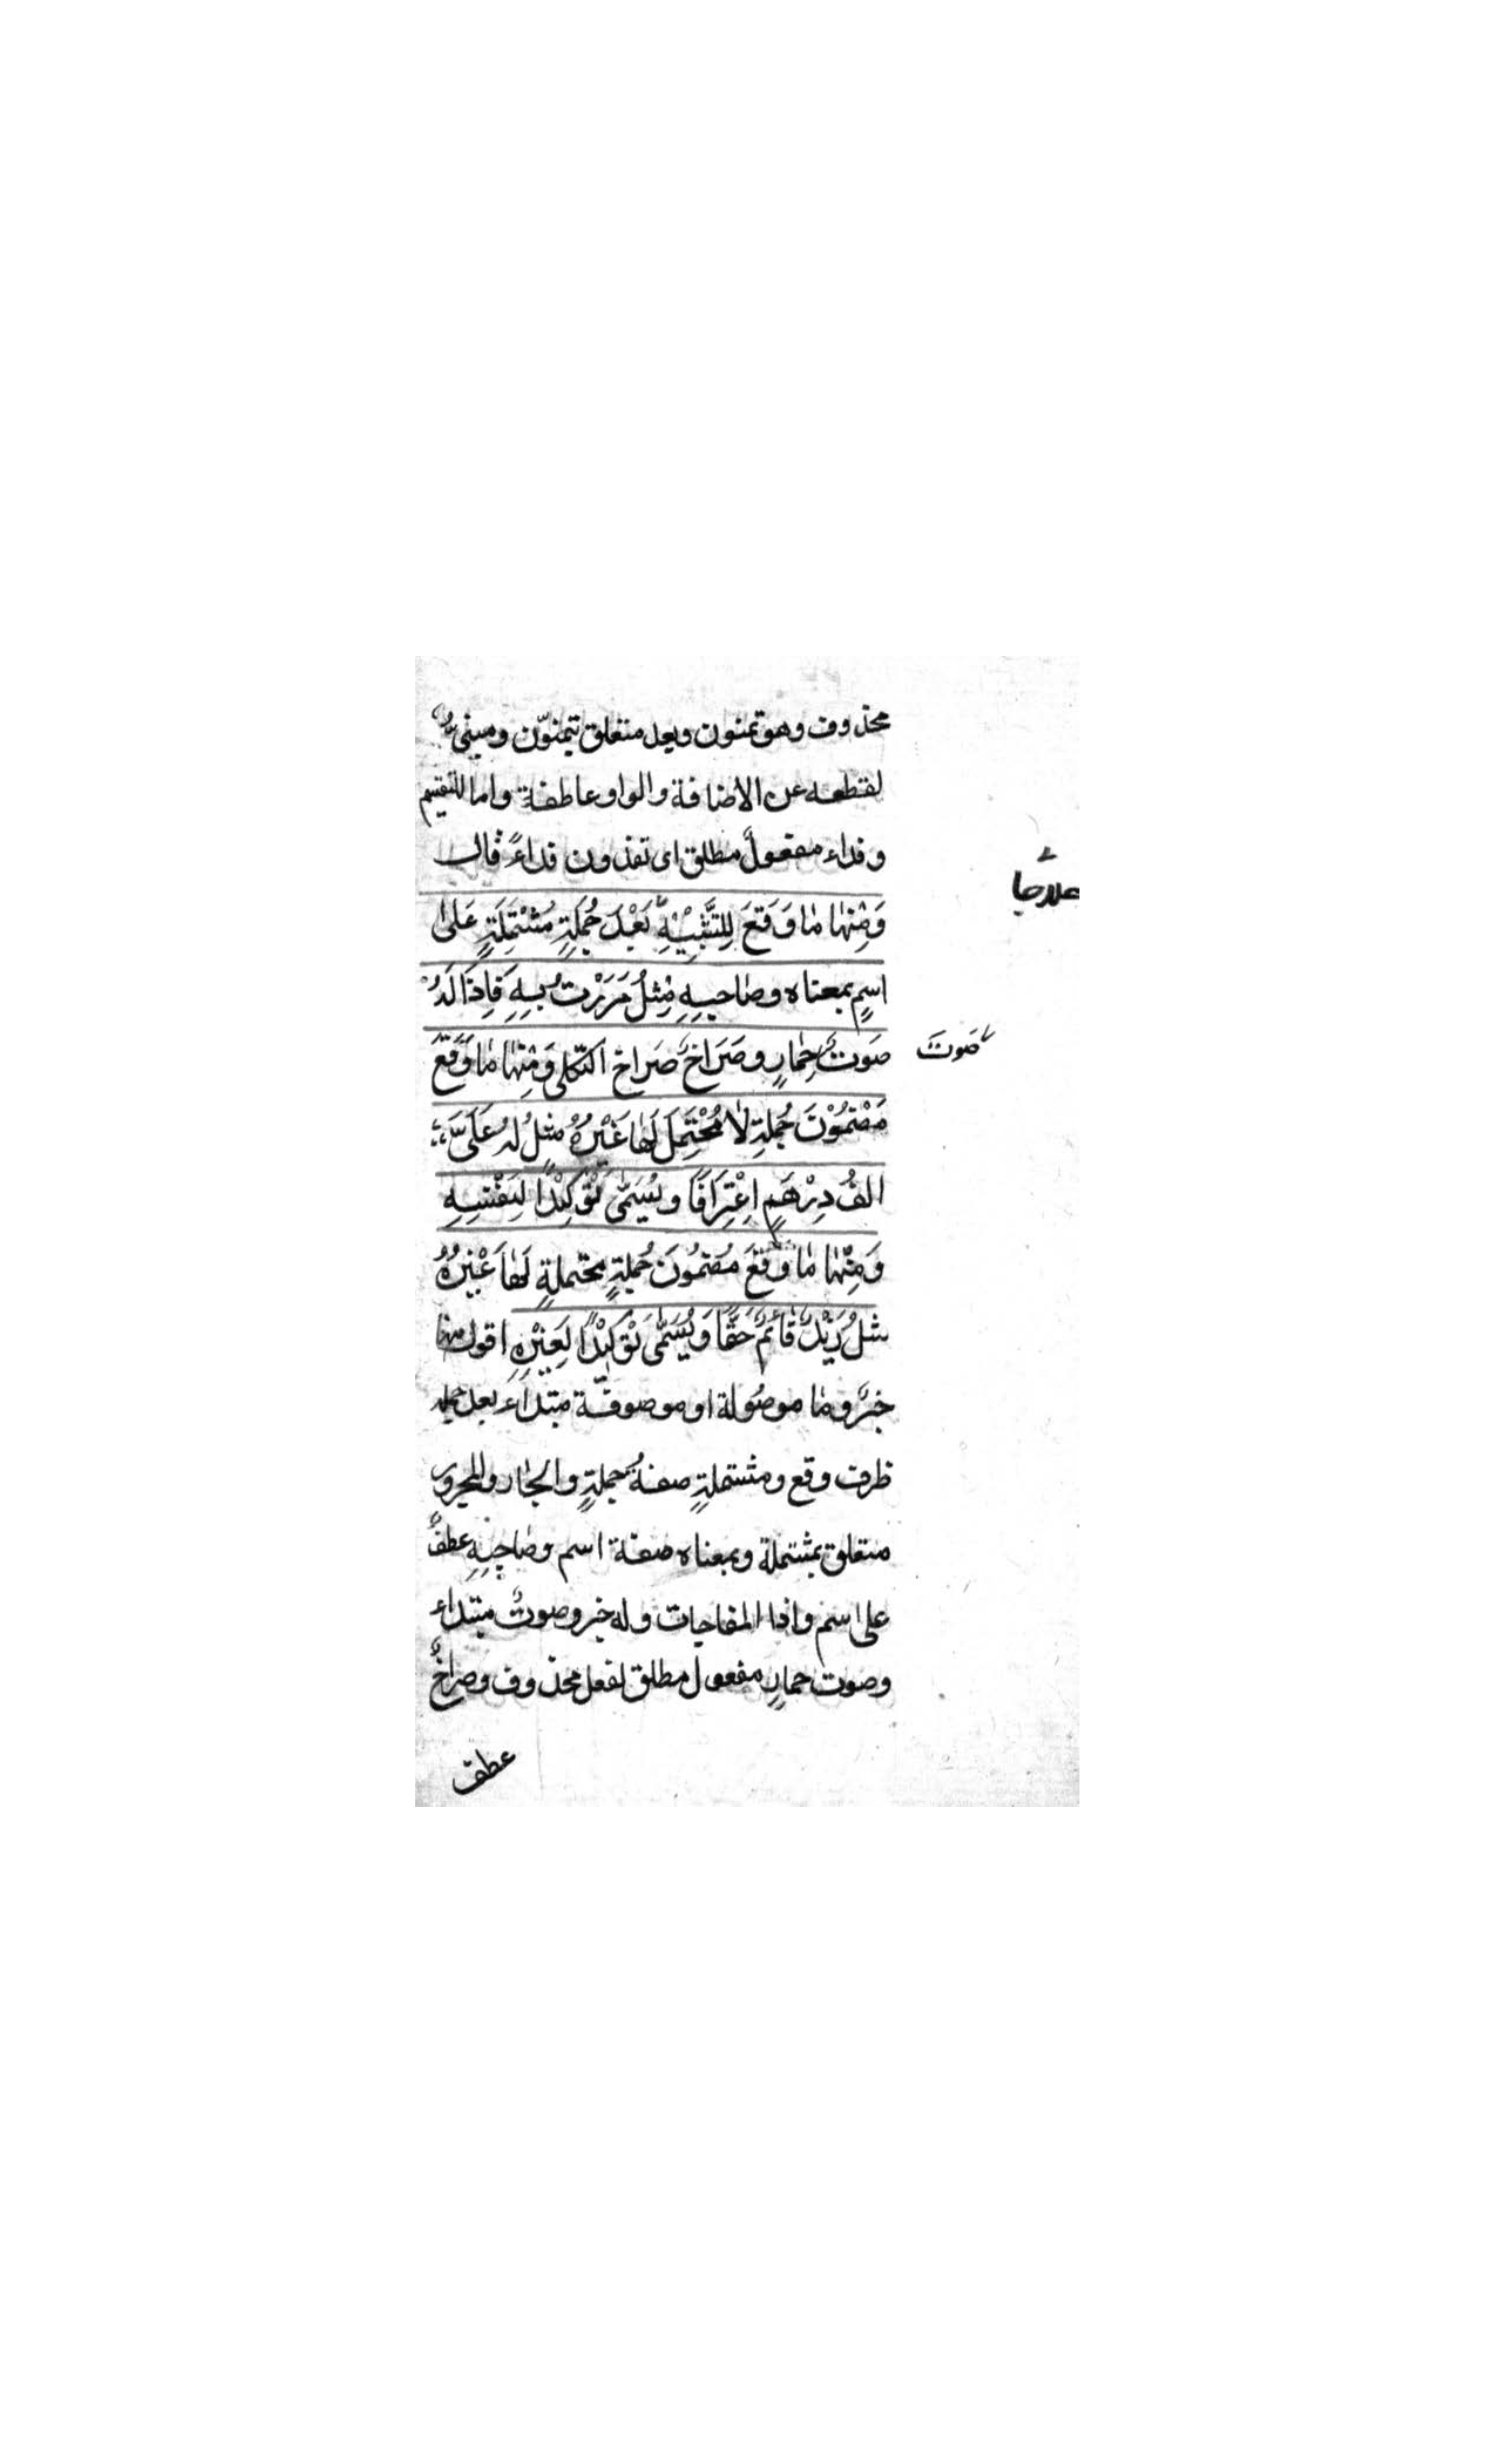 محذوف وهو تمنون وبعد متعلق بتمنوّن ومبنىٌّ
لقطعه عن الاضافة والواو عاطفة واما للتقسيم
وفداء مفعولٌ مطلق اى تفدون فداءً قال
وَمِنْهٰا مٰا وَقَعَ لِلتَّشْبِيْهِ بَعْدَ جُمَلَةٍ مُشْتَمِلَةٍ عَلىٰ
علاجا
اسمٍ بمعناه وصٰاحبِهِ مِثلُ مَرَرْتُ بِهِ فَاِذَا لَهُ
صَوتٌ حِمٰارٍ وصَرَاخٌ صَراخ الثّكلى وَمِنْهٰا مٰا وَقَعَ
صَوتَ
مَضْمُوْنَ جُملةِ لٰا مُحْتَمِلَ لَهٰا غَيْرُهُ مثِلُ لهُ عَلَىَّ
الفُ دِرْهَمٍ اِعْتِرَافًا ويُسَمّٰى تَوْكِيْدًا لِنَفْسِهِ
وَمِنْهٰا مٰا وَقَعَ مَضمُونَ جُملةٍ محتملةٍ لَهٰا غَيْرُهُ
مثلُ زَيْدٌ قٰائمٌ حَقًّا وَيُسَمّٰى تَوْكيْدًا لِغَيْرِهِ اقول منها
خبرٌ ومٰا موصُولة او موصوفة مبتداء بعد جملة
ظرف وقع ومشتملةٍ صفةُ جملةٍ والجٰار والمجرور
متعلق بمشتملة وبمعناه صفة اسم وصٰاحبِهِ عطفٌ
على اسم واذا المفاجات وله خبر وصوتٌ مبتداء
وصوت حمارٍ مفعول مطلق لفعل محذوف وصراخٌ
عطف